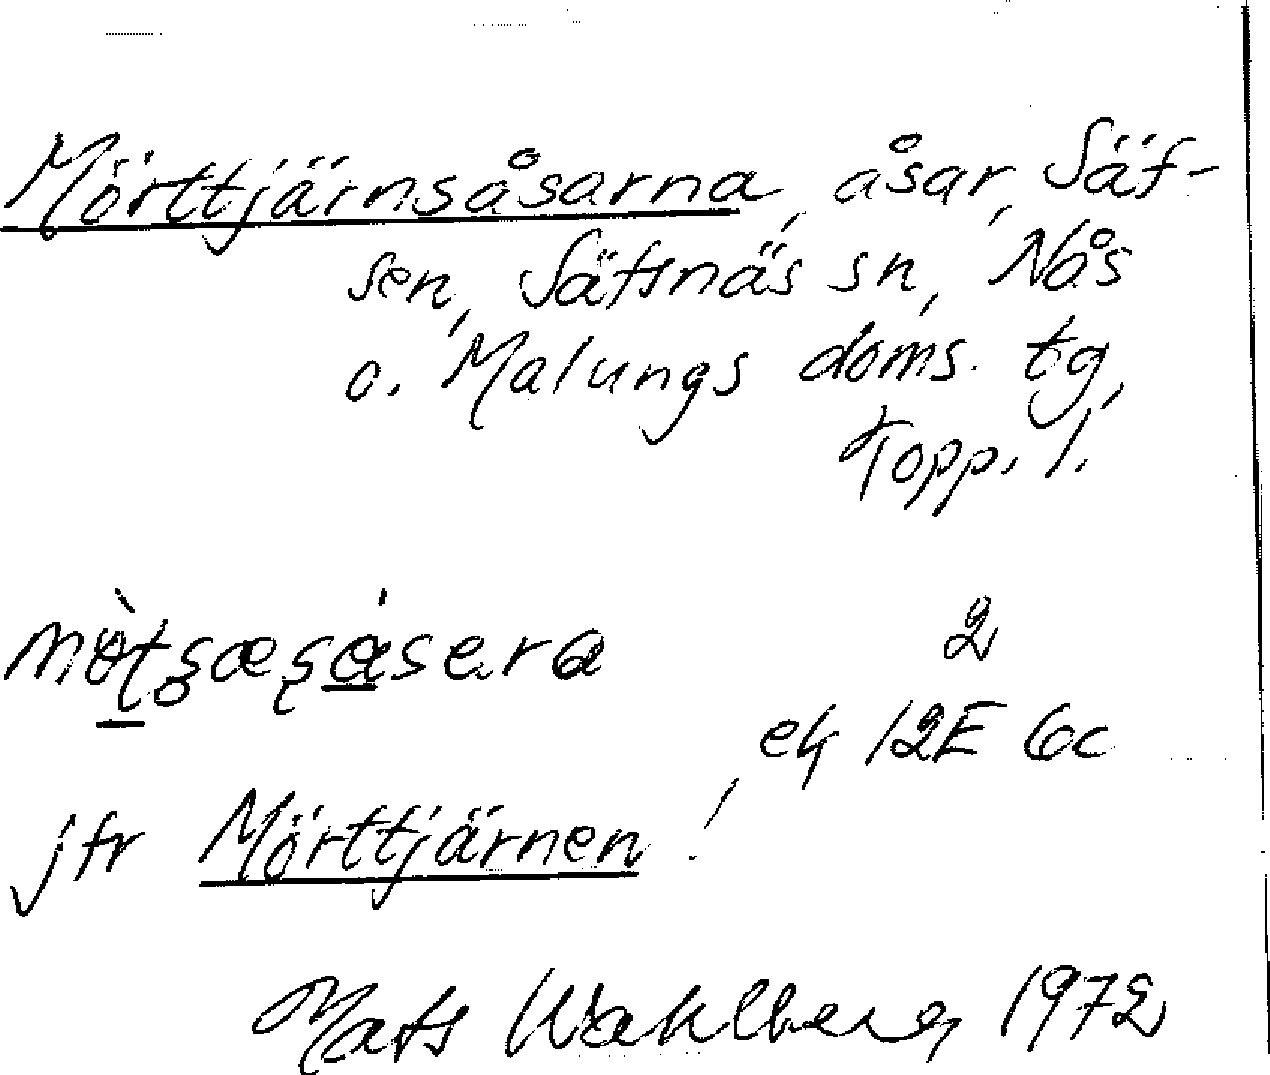 Mörttjärnsåsarna, åsar, Säf-
sen, Säfsnäs sn, Nås
o. Malungs doms. tg,
Kopp. l.
2
ek 12E 6c
jfr Mörttjärnen!
Mats Wahlberg 1972